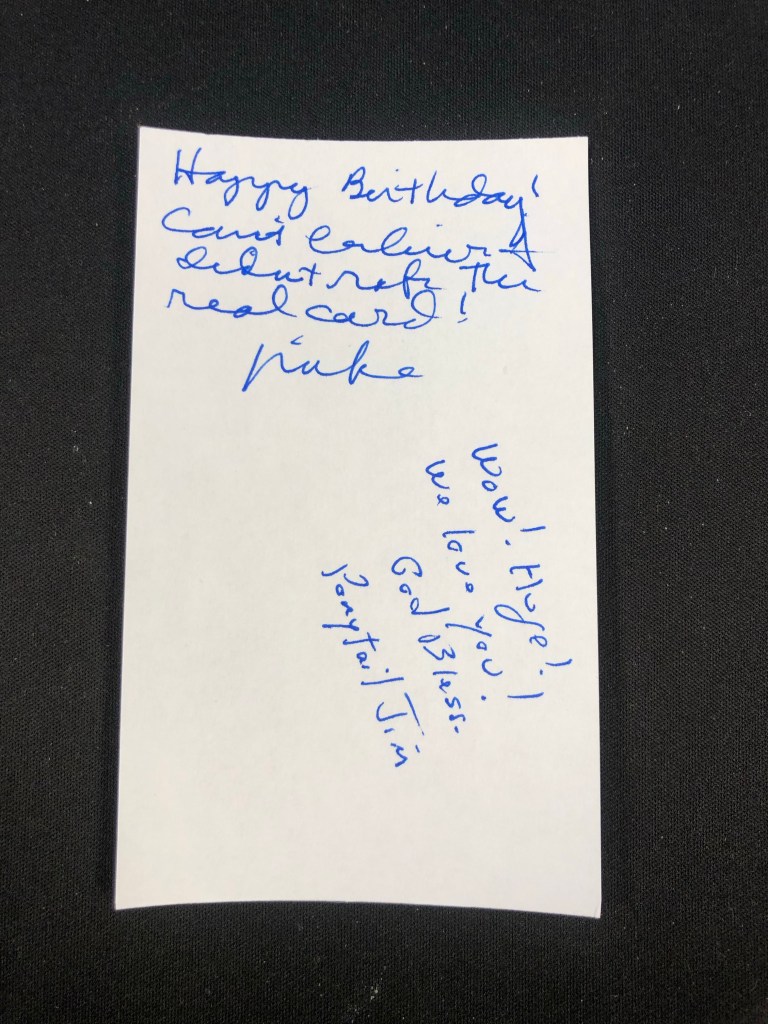 Happy Birthday!
Came earlier &
didn't see the
real card!
Wow! Huge!!
We love you!
God Bless.
Ponytail Jim